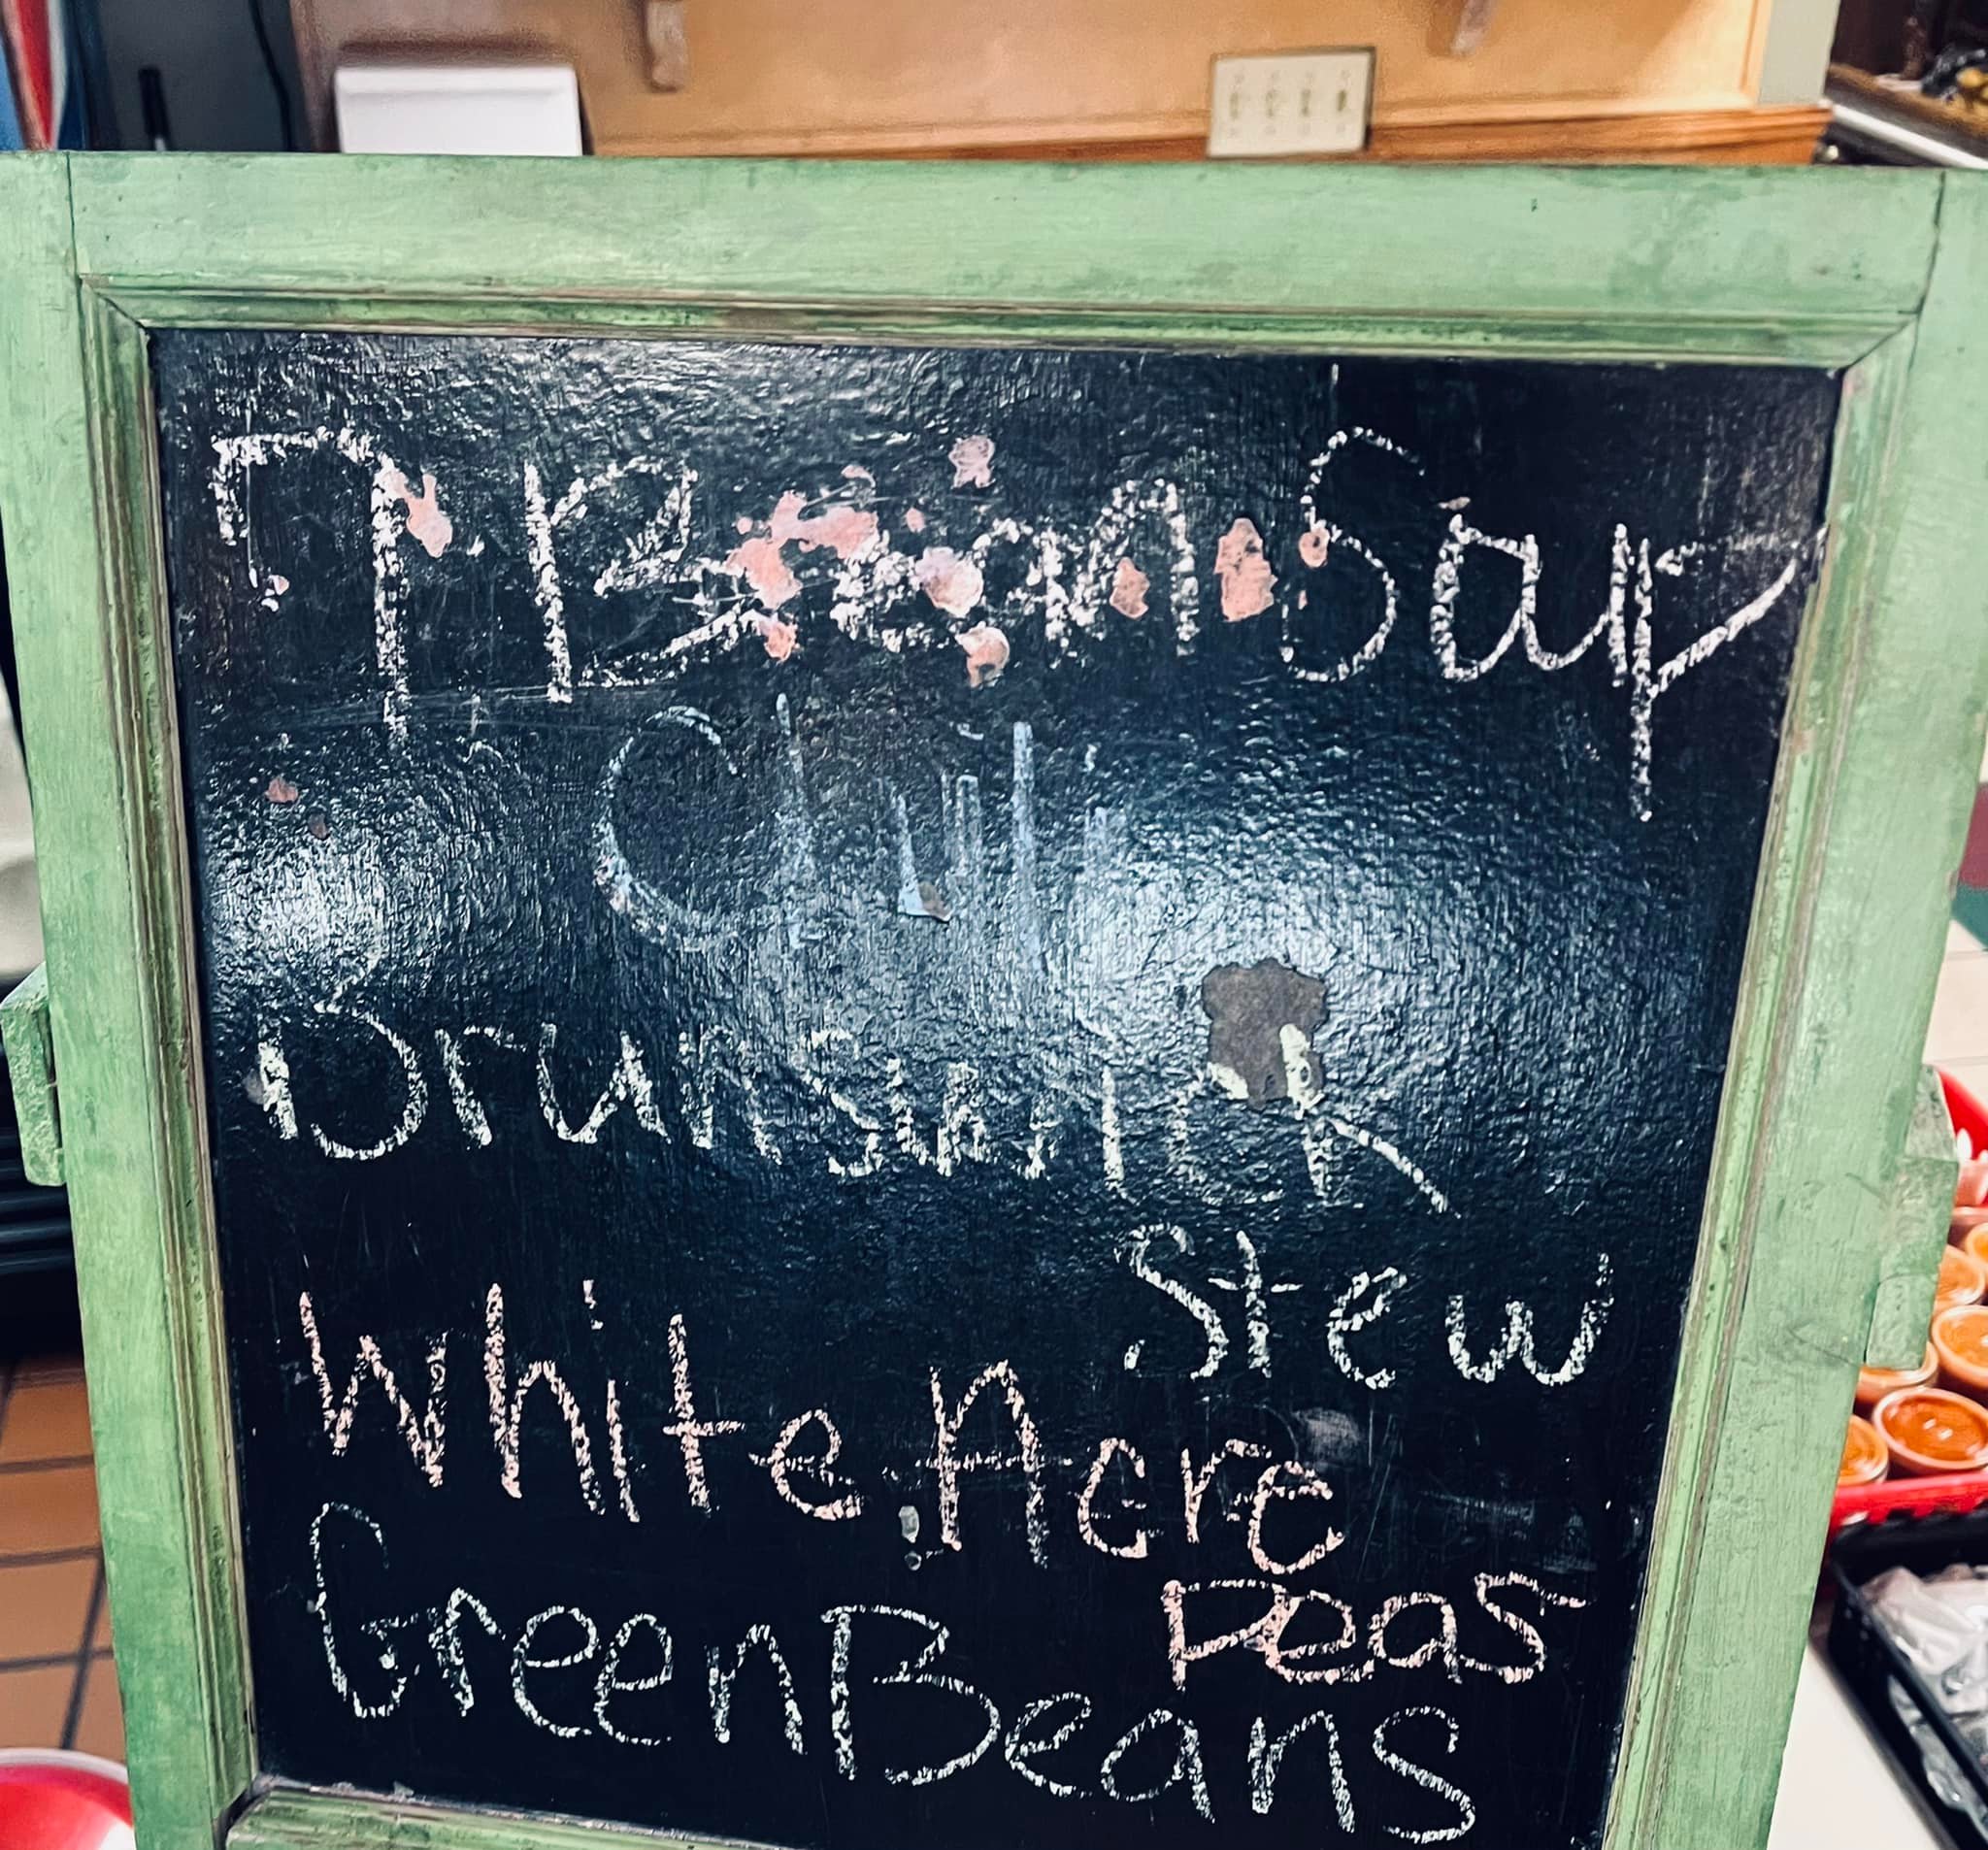 7 Bean Soup
Chili
Brunswick
Stew
White Acre
Peas
Green Beans